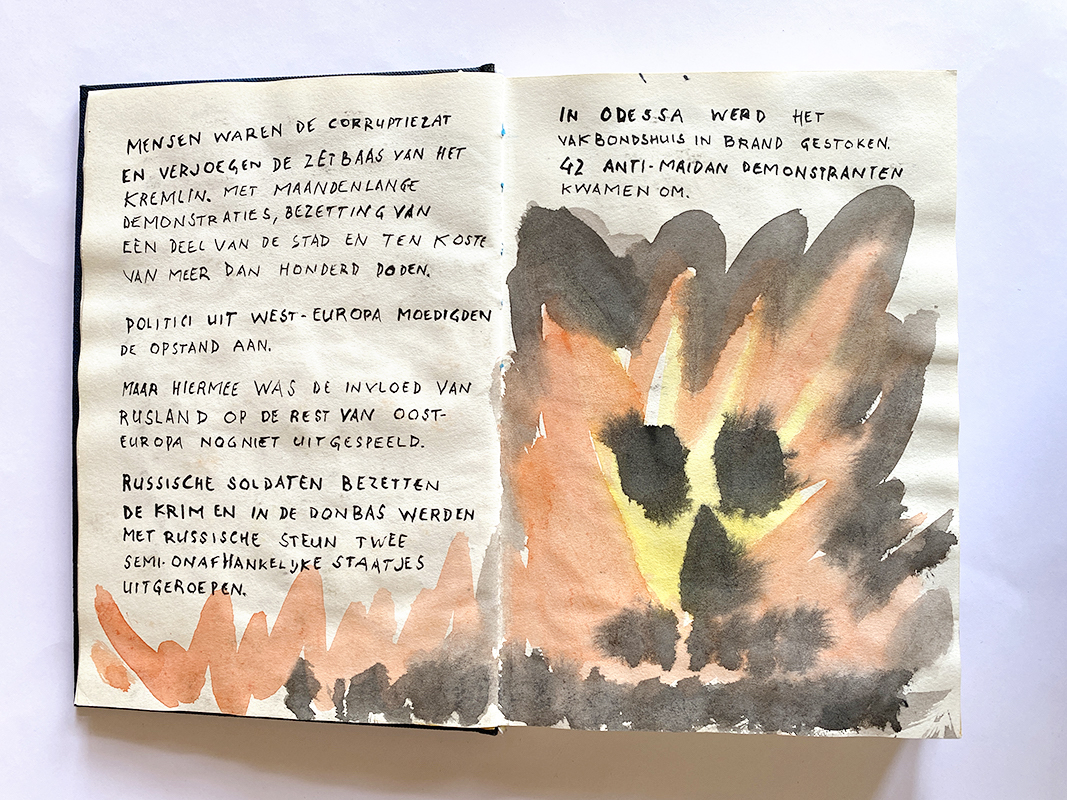 MENSEN WAREN DE CORRUPTIEZAT
EN VERJOEGEN DE ZETBAAS VAN HET
KREMLIN. MET MAANDENLANGE
DEMONSTRATIES, BEZETTING VAN
EÈN DEEL VAN DE STAD EN TEN KOSTE
VAN MEER DAN HONDERD DODEN.
POLITICI UIT WEST-EUROPA MOEDIGDEN
DE OPSTAND AAN.
MAAR HIERMEE WAS DE INVLOED VAN
RUSLAND OP DE REST VAN OOST-
EUROPA NOG NIET UITGESPEELD.
RUSSISCHE SOLDATEN BEZETTEN
DE KRIM EN IN DE DONBAS WERDEN
MET RUSSISCHE STEUN TWEE
SEMI-ONAFHANKELIJKE STAATJES
UITGEROEPEN.
IN ODESSA WERD HET
VAKBONDSHUIS IN BRAND GESTOKEN.
42 ANTI-MAIDAN DEMONSTRANTEN
KWAMEN OM.